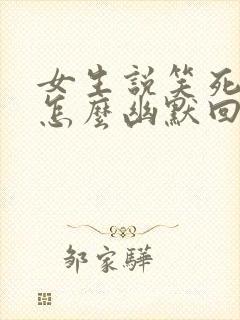 女生説笑死
怎麼幽默回
邹家驊